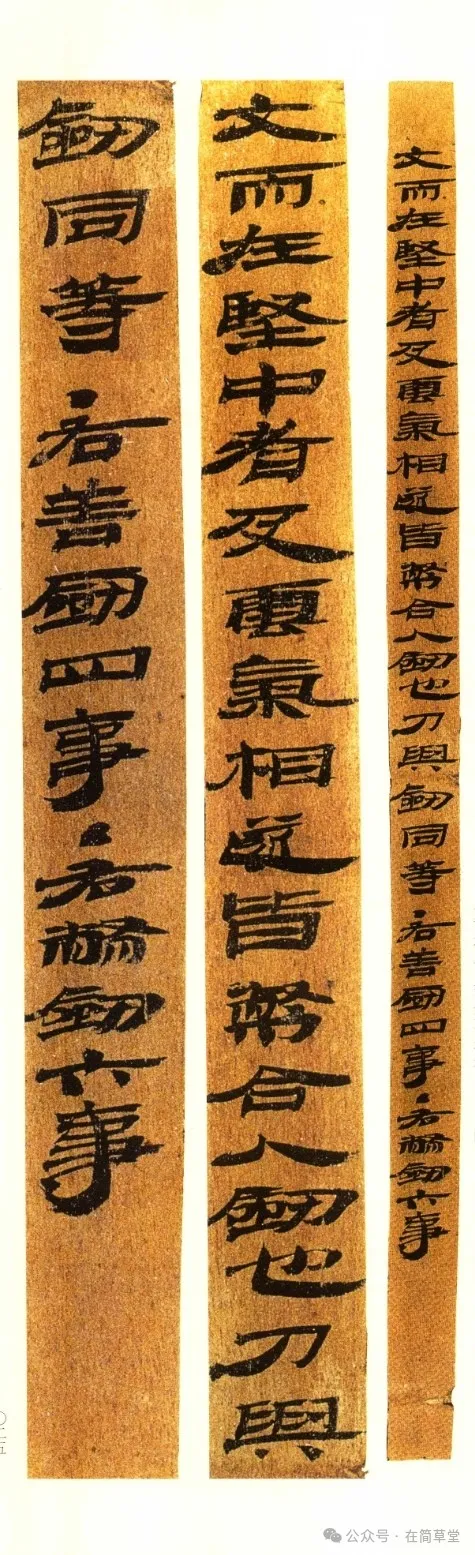 文而在堅中者及雲氣相遂皆幣合人劍也刀與劍同等·右善劍四事·右幣劍六事
文而在堅中者及雲氣相遂皆幣合人劍也刀與
劍同等·右善劍四事·右幣劍六事
〇二五
公众号 · 在简草堂